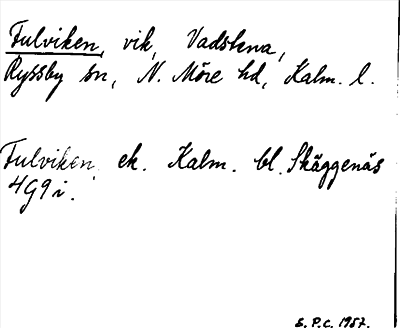 Fulviken, vik, Vadstena,
Ryssby sn, N. Möre hd, Kalm. l.
Fulviken ek. Kalm. bl. Skäggenäs
4G9i.
S.P.C. 1957.